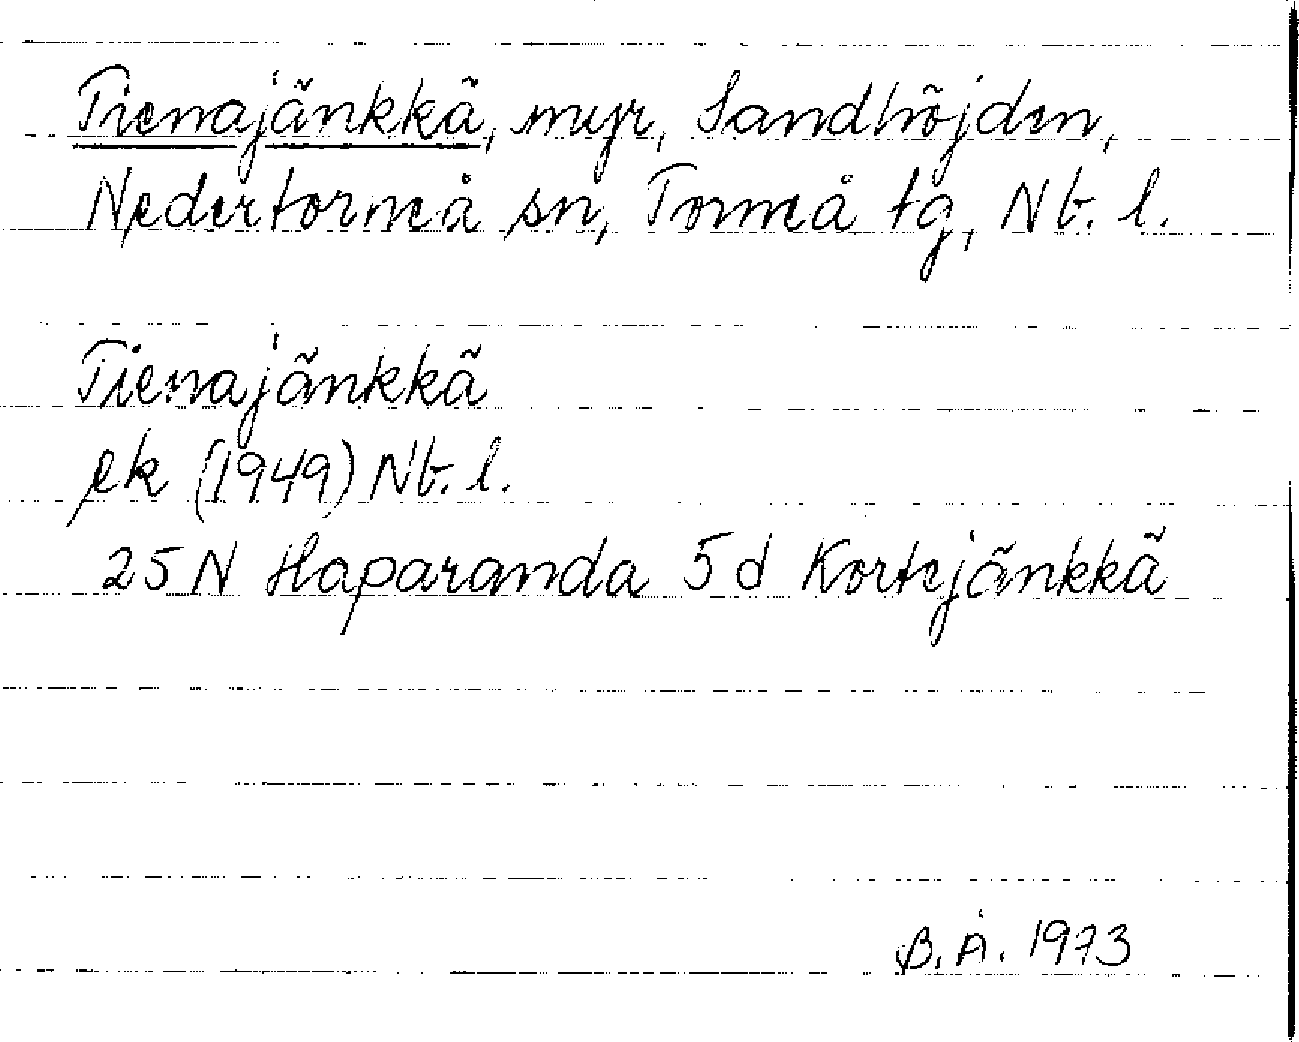 Tienajänkkä, myr, Sandhöjden,
Nedertorneå sn, Torneå tg, Nb. l.
Tienajänkkä
ek (1949) Nb. l.
25 N Haparanda 5 d Kortejänkkä
B. Å. 1973